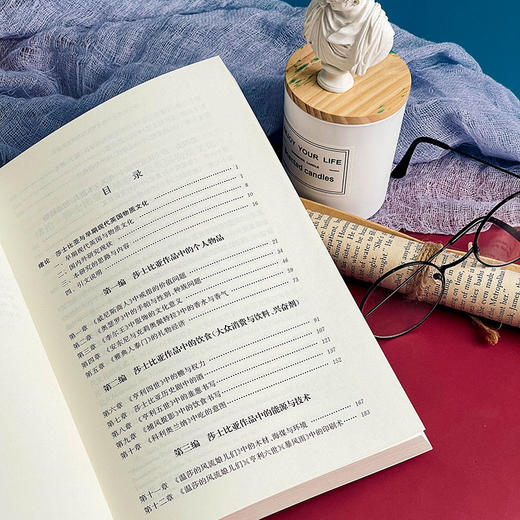 目 录
绪论 莎士比亚与早期现代英国物质文化 1
一、早期现代英国与物质文化
二、国内外研究现状
三、本研究的思路与内容
四、引文说明
第一编 莎士比亚作品中的个人物品
第一章 《威尼斯商人》中戒指的价值问题
第二章 《奥瑟罗》中的手帕与性别、种族问题
第三章 《李尔王》中服饰的文化意义
第四章 《安东尼与克莉奥佩特拉》中的香水与香气
第五章 《雅典人泰门》的礼物经济
第二编 莎士比亚作品中的饮食(大众消费与饮料、兴奋剂)
第六章 《亨利四世》中的糖与权力 91
第七章 莎士比亚历史剧中的酒 107
第八章 《亨利五世》中的韭葱书写 121
第九章 《捕风捉影》中的饮食书写 137
第十章 《科利奥兰纳》中吃的意图 152
第三编 莎士比亚作品中的能源与技术
第十一章 《温莎的风流娘儿们》中的木材、海煤与环境 167
第十二章 《温莎的风流娘儿们》《亨利六世》《暴风雨》中的印刷术 183
ENJOY YOUR LIFE
scented candles